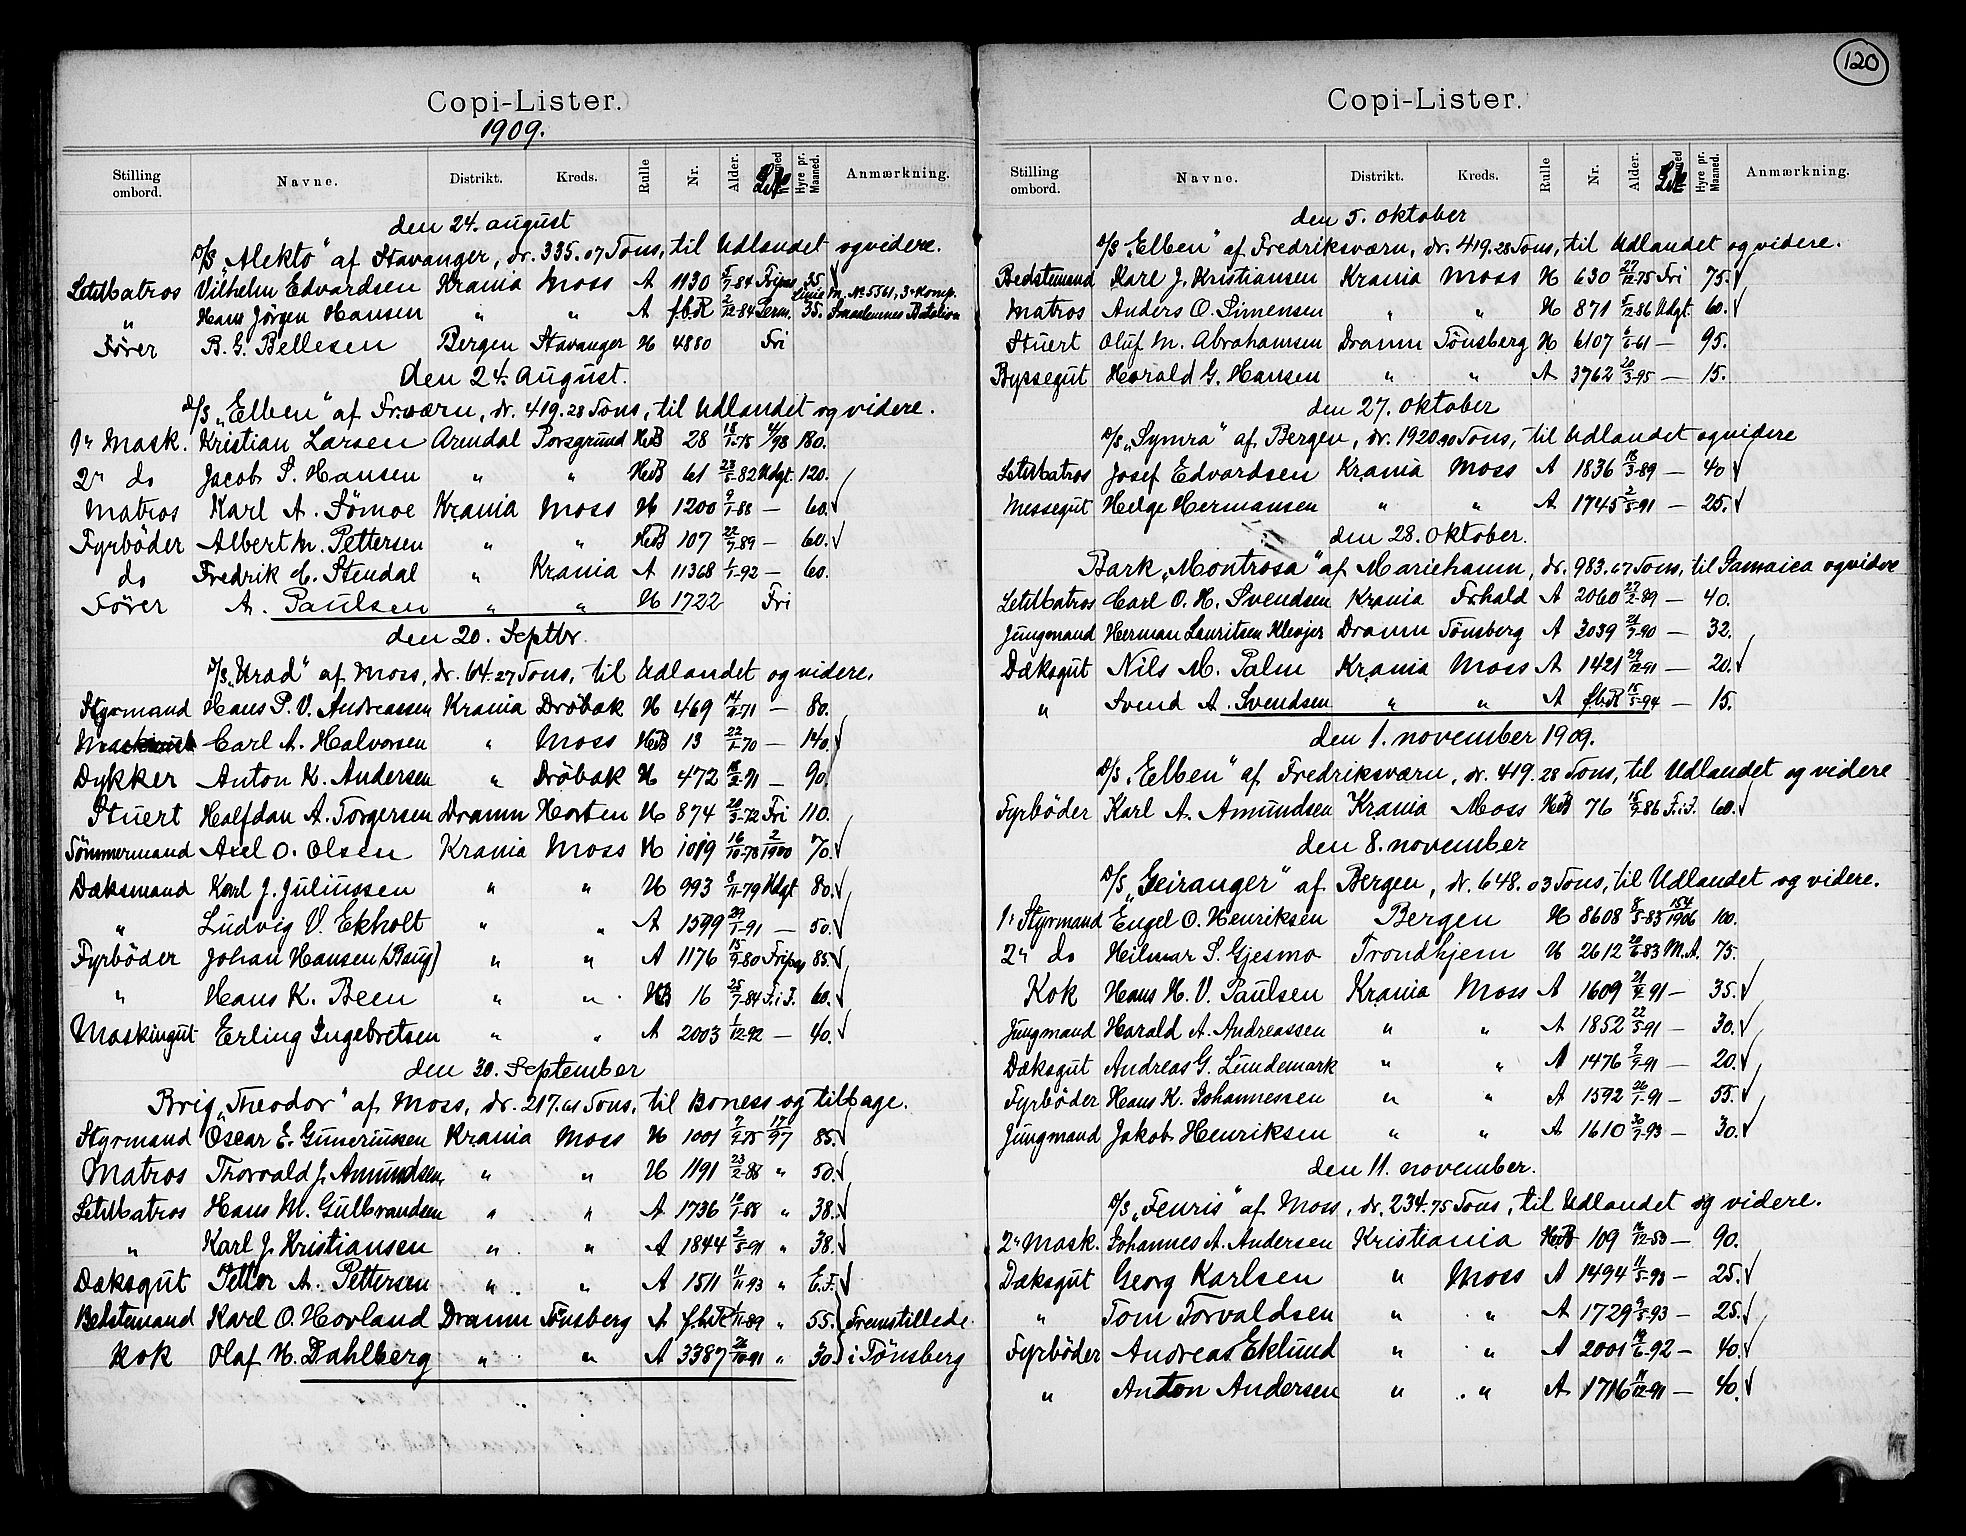 Copi-Lister.
1909.
Stilling ombord. Navne. Distrikt. Kreds. Rulle Nr. Alder. Hyre pr. Maaned. Anmærkning.
den 24. august
D/S „Alekto" af Stavanger, dr. 335.07 Tons, til Udlandet og videre.
LetMatros Vilhelm Edvardsen Krania Moss A 1130 5/7-84 Fripas 35. M. No 5561, 3die Komp.
" Hans Jörgen Hansen " " A fbR 2/12-84 Linie 35. Smaalenenes Batalion
Fører B. G. Bellesen Bergen Stavanger H 4880 Fri
den 24. august.
D/S „Elben" af Frværn, dr. 419.28 Tons, til Udlandet og videre.
1ste Mask. Kristian Larsen Arendal Porsgrund HdB 28 18/1-75 4/98 180.
2den do Jacob S. Hansen " " HdB 61 23/5-82 Udgt. 120.
Matros Karl A. Sømoe Krania Moss H 1200 9/1-88 — 60.
Fyrbøder Albert M. Pettersen " " HdB 107 22/7-89 — 60.
do Fredrik C. Stendal " Krania A 11368 1/1-92 — 60.
Fører A. Paulsen " " H 1722 Fri
den 20. Septbr.
D/S „Uræd" af Moss, dr. 64.27 Tons, til Udlandet og videre.
Styrmand Hans P. V. Andreassen Krania Drøbak H 469 14/8-71 — 80.
Maskinist Carl A. Halvorsen " Moss HdB 13 22/1-70 — 140.
Dykker Anton K. Andersen " Drøbak H 472 — 90.
Stuert Halfdan A. Torgersen Dramn Horten H 874 20/3-72 Fri 110.
Tømmermand Axel O. Olsen Krania Moss H 1019 16/10-78 2/1900 70.
Dæksmand Karl J. Juliussen " " H 993 8/11-79 Udgt 80.
" Ludvig V. Ekholt " " A 1599 29/1-91 — 50.
Fyrbøder Johan Hansen (Raug) " " A 1176 15/9-80 Fripas 85.
" Hans K. Been " " HdB 16 25/7-84 F.i.F. 60.
Maskingut Erling Ingebretsen " " A 2003 1/12-92 — 40.
den 30. September
Brig „Theodor" af Moss, dr. 217.61 Tons, til Boness og tilbage.
Styrmand Oscar E. Guneriussen Krania Moss H 1001 7/9-75 171/97 85.
Matros Thorvald J. Amundsen " " H 1191 23/2-88 " 50.
LetMatros Hans M. Gulbrandsen " " A 1736 10/1-88 " 38.
" Karl J. Kristiansen " " A 1844 2/5-91 " 38.
Dæksgut Petter A. Pettersen " " A 1511 11/11-93 " E.F.
Bedstemand Karl O. Hovland Dramn Tønsberg A fbR 1/11-89 " 55. Fremstillede
Kok Olaf H. Dahlberg " " A 3387 26/10-91 " 30. i Tønsberg
120
Copi-Lister.
Stilling ombord. Navne. Distrikt. Kreds. Rulle Nr. Alder. Hyre pr. Maaned. Anmærkning.
den 5. oktober
D/S „Elben" af Fredriksværn, dr. 419.28 Tons, til Udlandet og videre.
Bedstemand Karl J. Kristiansen Krania Moss H 630 27/12-75 Fri 75.
Matros Anders O. Simensen " " H 871 5/12-86 Udgt. 60.
Stuert Oluf M. Abrahamsen Dramn Tønsberg H 6107 6/6-61 — 95.
Byssegut Harald G. Hansen " " A 3762 20/3-95 — 15.
den 27. oktober
D/S „Symra" af Bergen, dr. 1920.90 Tons, til Udlandet og videre
LetMatros Josef Edvardsen Krania Moss A 1836 18/3-89 — 40
Messegut Helge Hermansen " " A 1745 2/5-91 — 25.
den 28. oktober.
Bark „Montrosa" af Mariehamn, dr. 983.67 Tons, til Jamaica og videre
LetMatros Carl O. H. Svendsen Krania Frhald A 2060 27/2-89 — 40.
Jungmand Herman Lauritsen Klevjer Dramn Tønsberg A 3039 21/9-90 — 32.
Dæksgut Nils M. Palm Krania Moss A 1421 29/12-91 — 20.
" Svend A. Svendsen " " A fbR 15/5-94 — 15.
den 1. november 1909.
D/S „Elben" af Fredriksværn, dr. 419.28 Tons, til Udlandet og videre
Fyrbøder Karl A. Amundsen Krania Moss HdB 76 15/9-86 F.i.F. 60.
den 8. november
D/S „Geiranger" af Bergen, dr. 648.03 Tons, til Udlandet og videre.
1ste Styrmand Engel O. Henriksen Bergen H 8608 8/5-83 154/1906 100.
2den do Heilmar S. Gjesmo Trondhjem H 2612 20/6-83 M.A. 75.
Kok Hans H. V. Paulsen Krania Moss A 1609 21/4-91 — 35.
Jungmand Harald A. Andreassen " " A 1852 22/5-91 — 30.
Dæksgut Andreas G. Lundemark " " A 1476 9/9-91 — 20.
Fyrbøder Hans K. Johannessen " " A 1592 26/1-91 — 55.
Jungmand Jakob Henriksen " " A 1610 30/7-93 — 30.
den 11. november.
D/S „Fenris" af Moss, dr. 234.75 Tons, til Udlandet og videre.
2den Mask. Johannes A. Andersen Kristiania HdB 109 16/12-53 — 90.
Dæksgut Georg Karlsen " Moss A 1494 11/5-93 — 25.
" Tom Torvaldsen " " A 1729 9/5-93 — 25.
Fyrbøder Andreas Eklund " " A 2001 19/6-92 — 40.
" Anton Andersen " " A 1716 11/12-91 — 40.